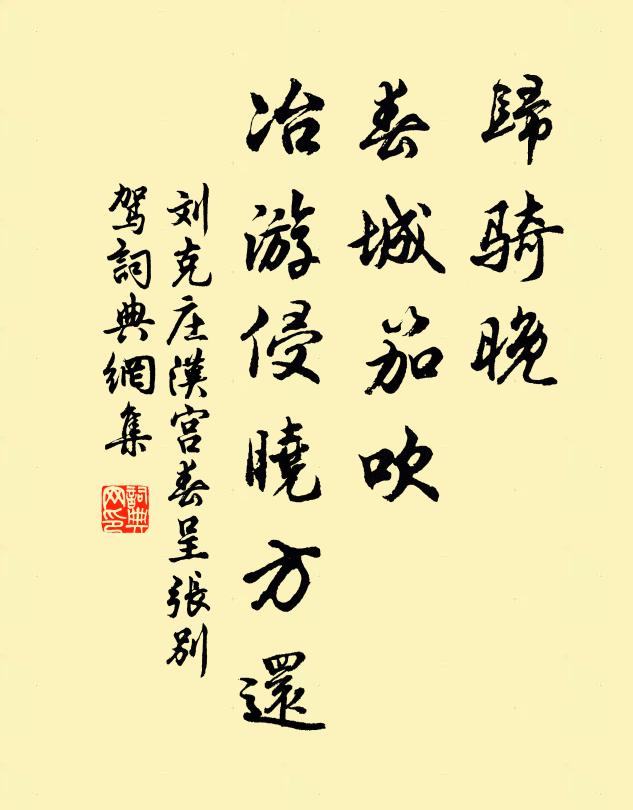 歸騎晚
春城笳吹
冶游侵曉方還
刘克庄漢宫春呈張别
駕詞典網集
詞典
网印